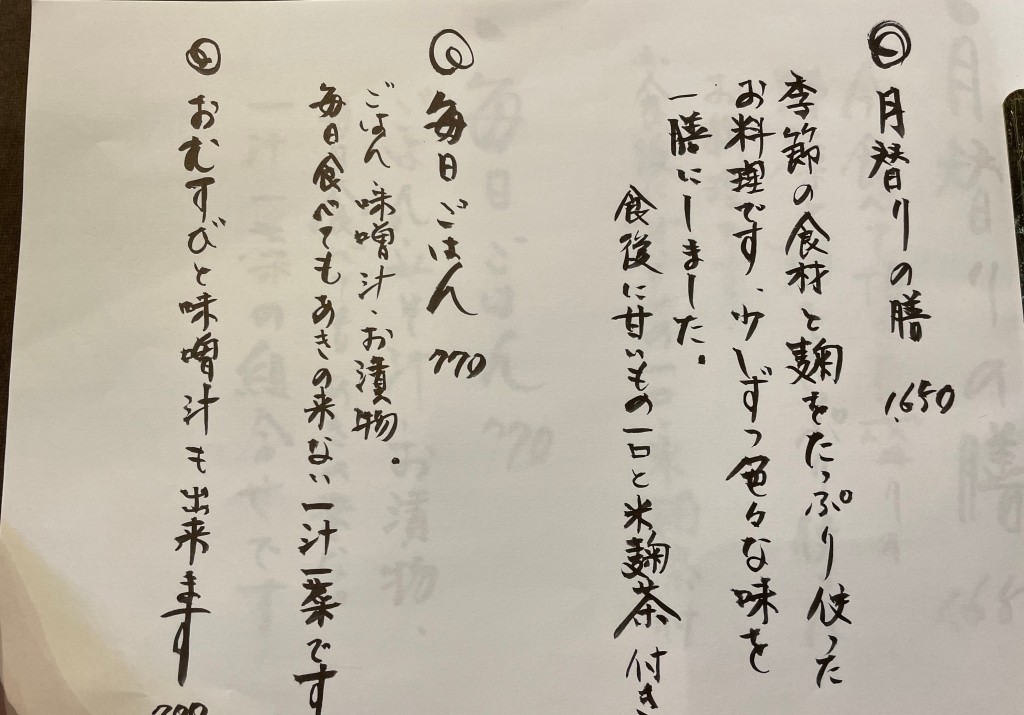 ◎月替りの膳 1,650
季節の食材と麹をたっぷり使った
お料理です、少しずつ色々な味を
一膳にしました。
食後に甘いもの一口と米麹茶付き
◎毎日ごはん 770
ごはん 味噌汁、お漬物。
毎日食べてもあきの来ない一汁一菜です
◎おむすびと味噌汁も出来ます